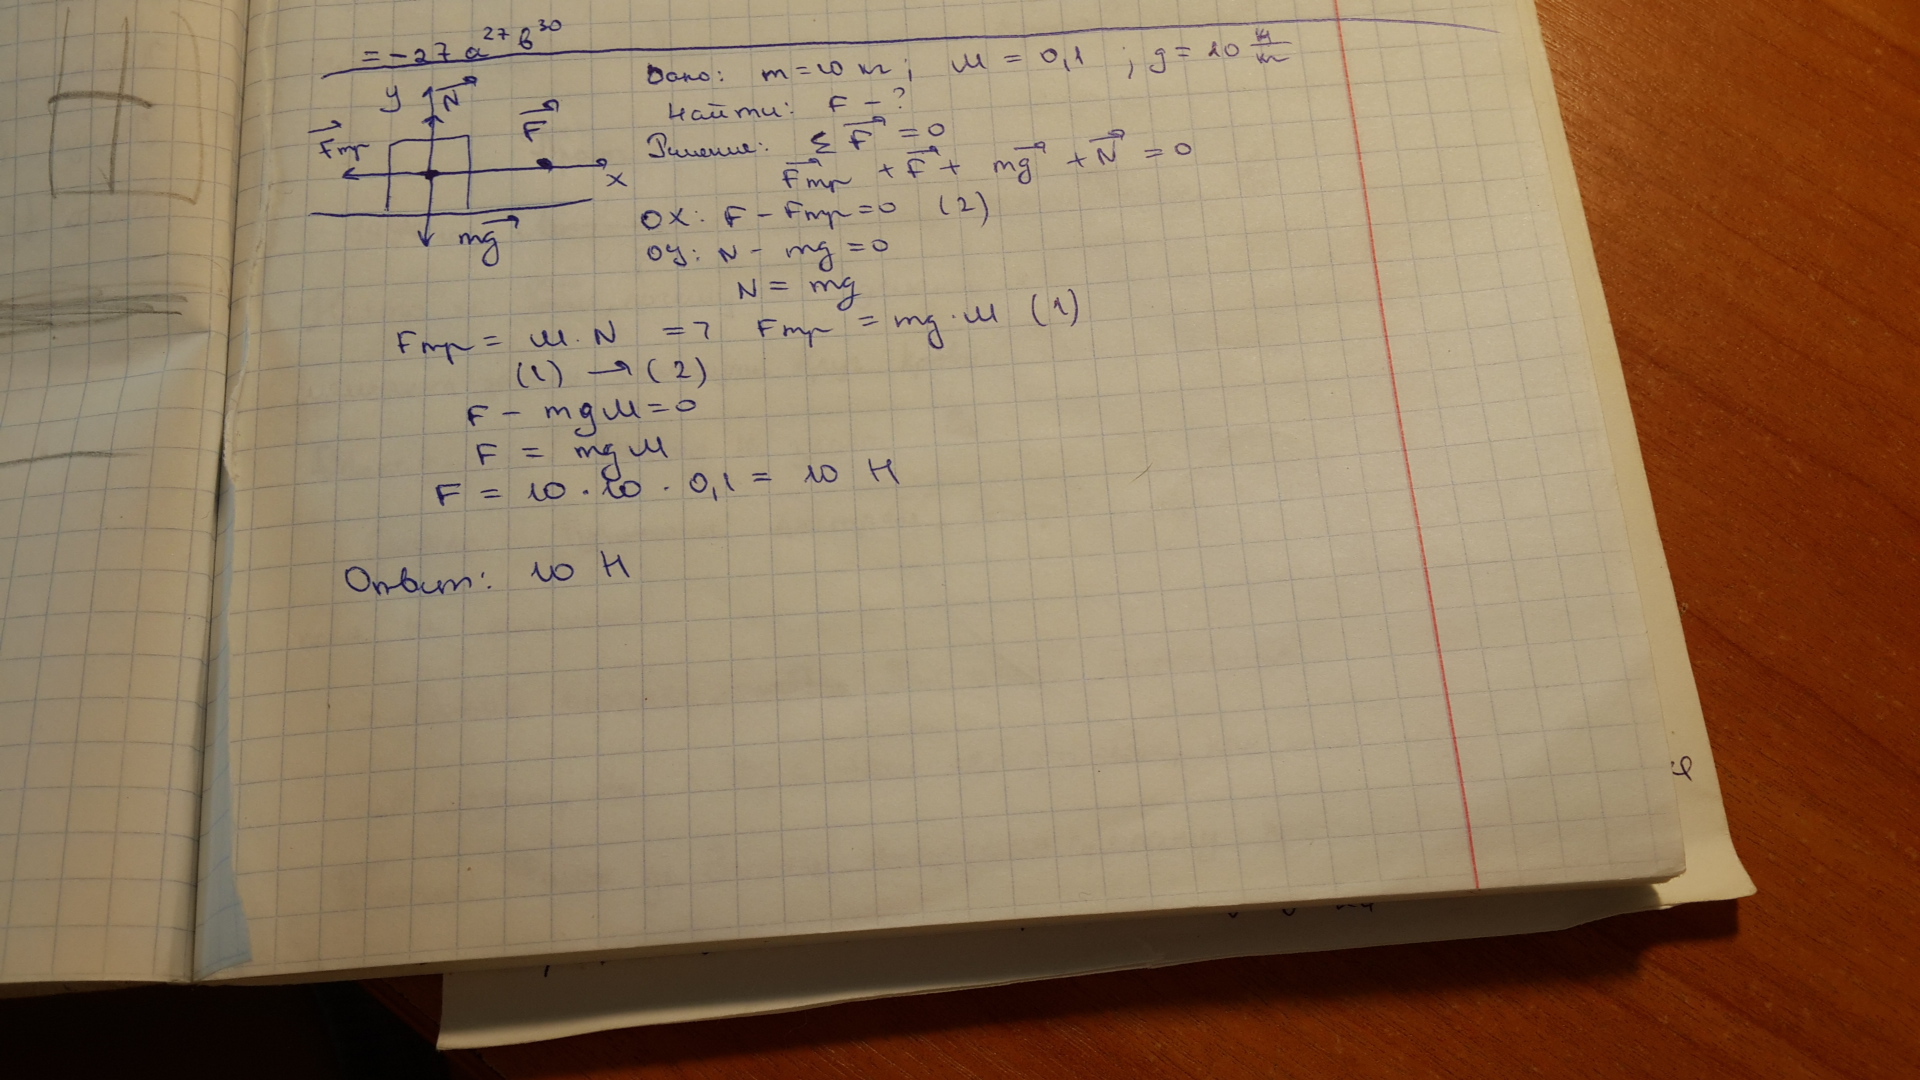 = -27 a^27 b^30
y N
F
Fтр
x
mg
Дано: m = 10 кг; μ = 0,1 ; g = 10 Н/кг
Найти: F - ?
Решение: Σ F = 0
Fтр + F + mg + N = 0
OX: F - Fтр = 0 (2)
OY: N - mg = 0
N = mg
Fтр = μ · N => Fтр = mg · μ (1)
(1) → (2)
F - mgμ = 0
F = mgμ
F = 10 · 10 · 0,1 = 10 Н
Ответ: 10 Н